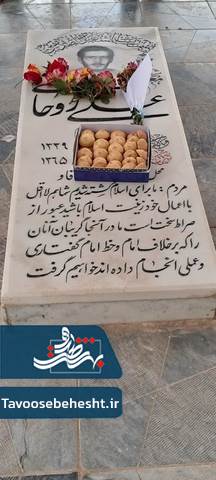 علی روحانی
۱۳۳۹
۱۳۶۵
محل
فاو
مردم: ما برای اسلام کشته شدیم شما هم لااقل
با اعمال خود زینت اسلام باشید عبور از
صراط سخت است ما در آنجا گریبان آنان
را که برخلاف امام و خط امام گفتاری
و عملی انجام داده اند خواهیم گرفت
Tavoosebehesht.ir